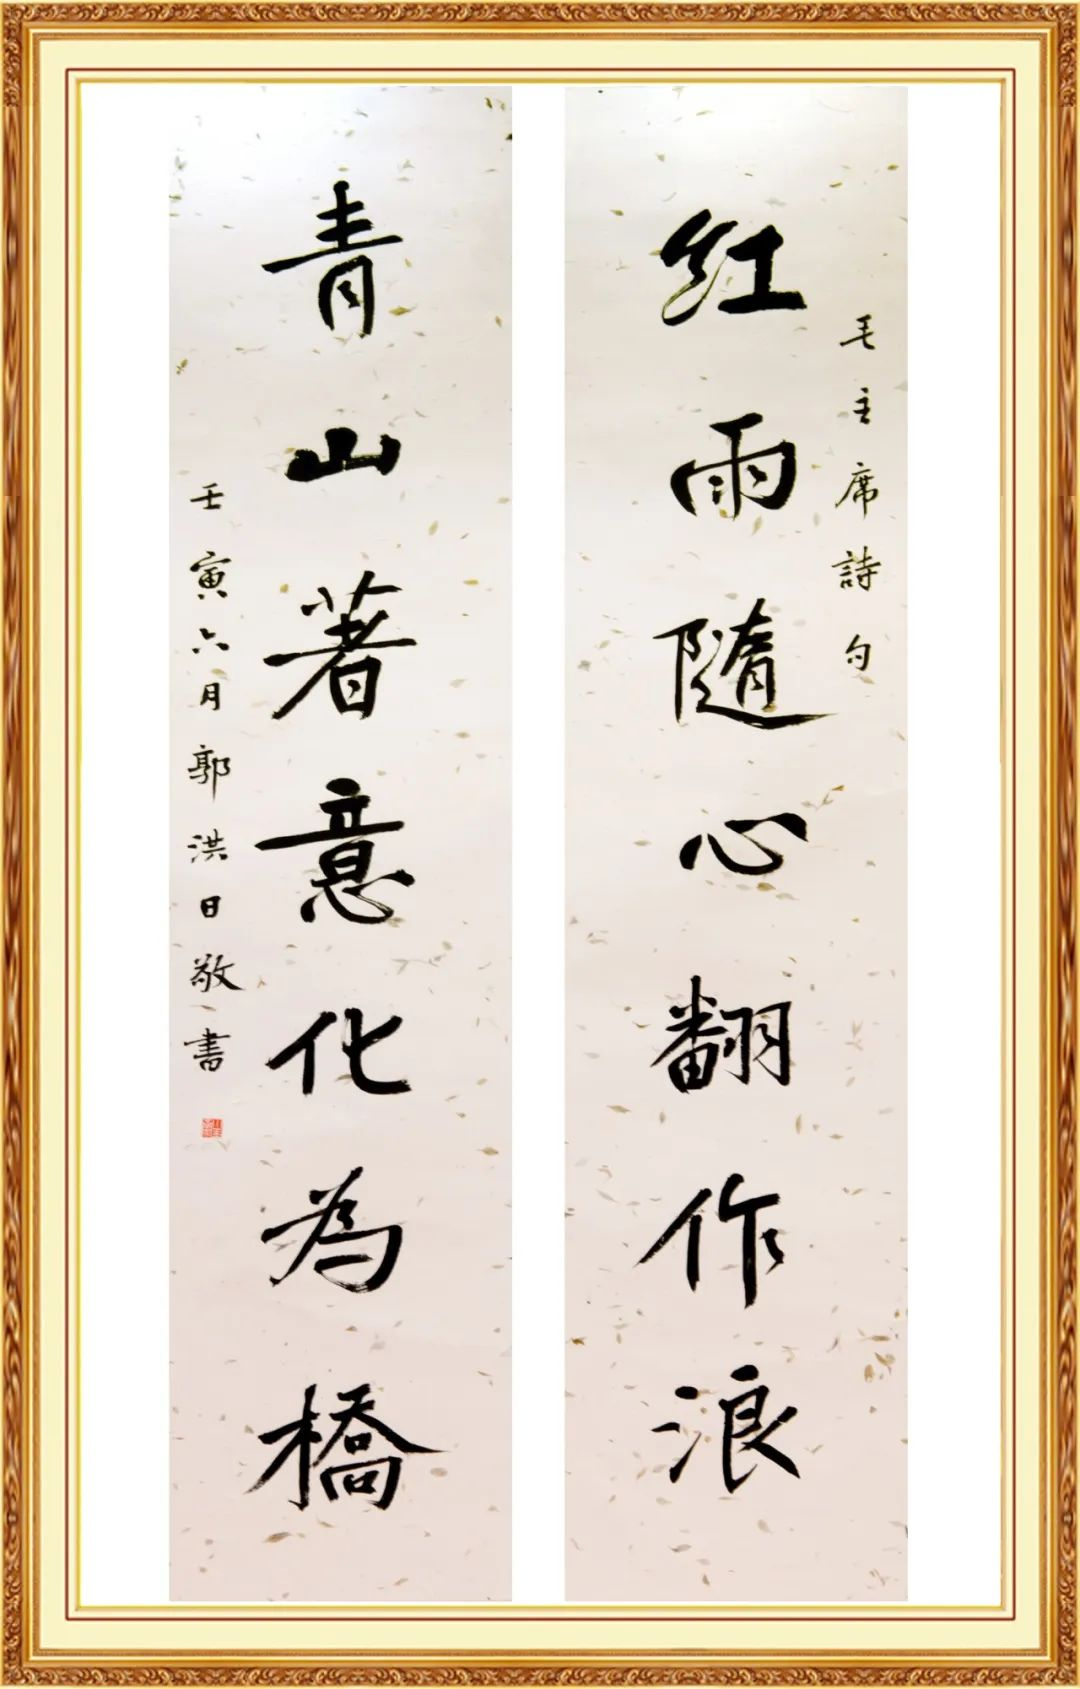 毛主席詩句
红雨隨心翻作浪
青山著意化為橋
壬寅六月郭洪日敬書